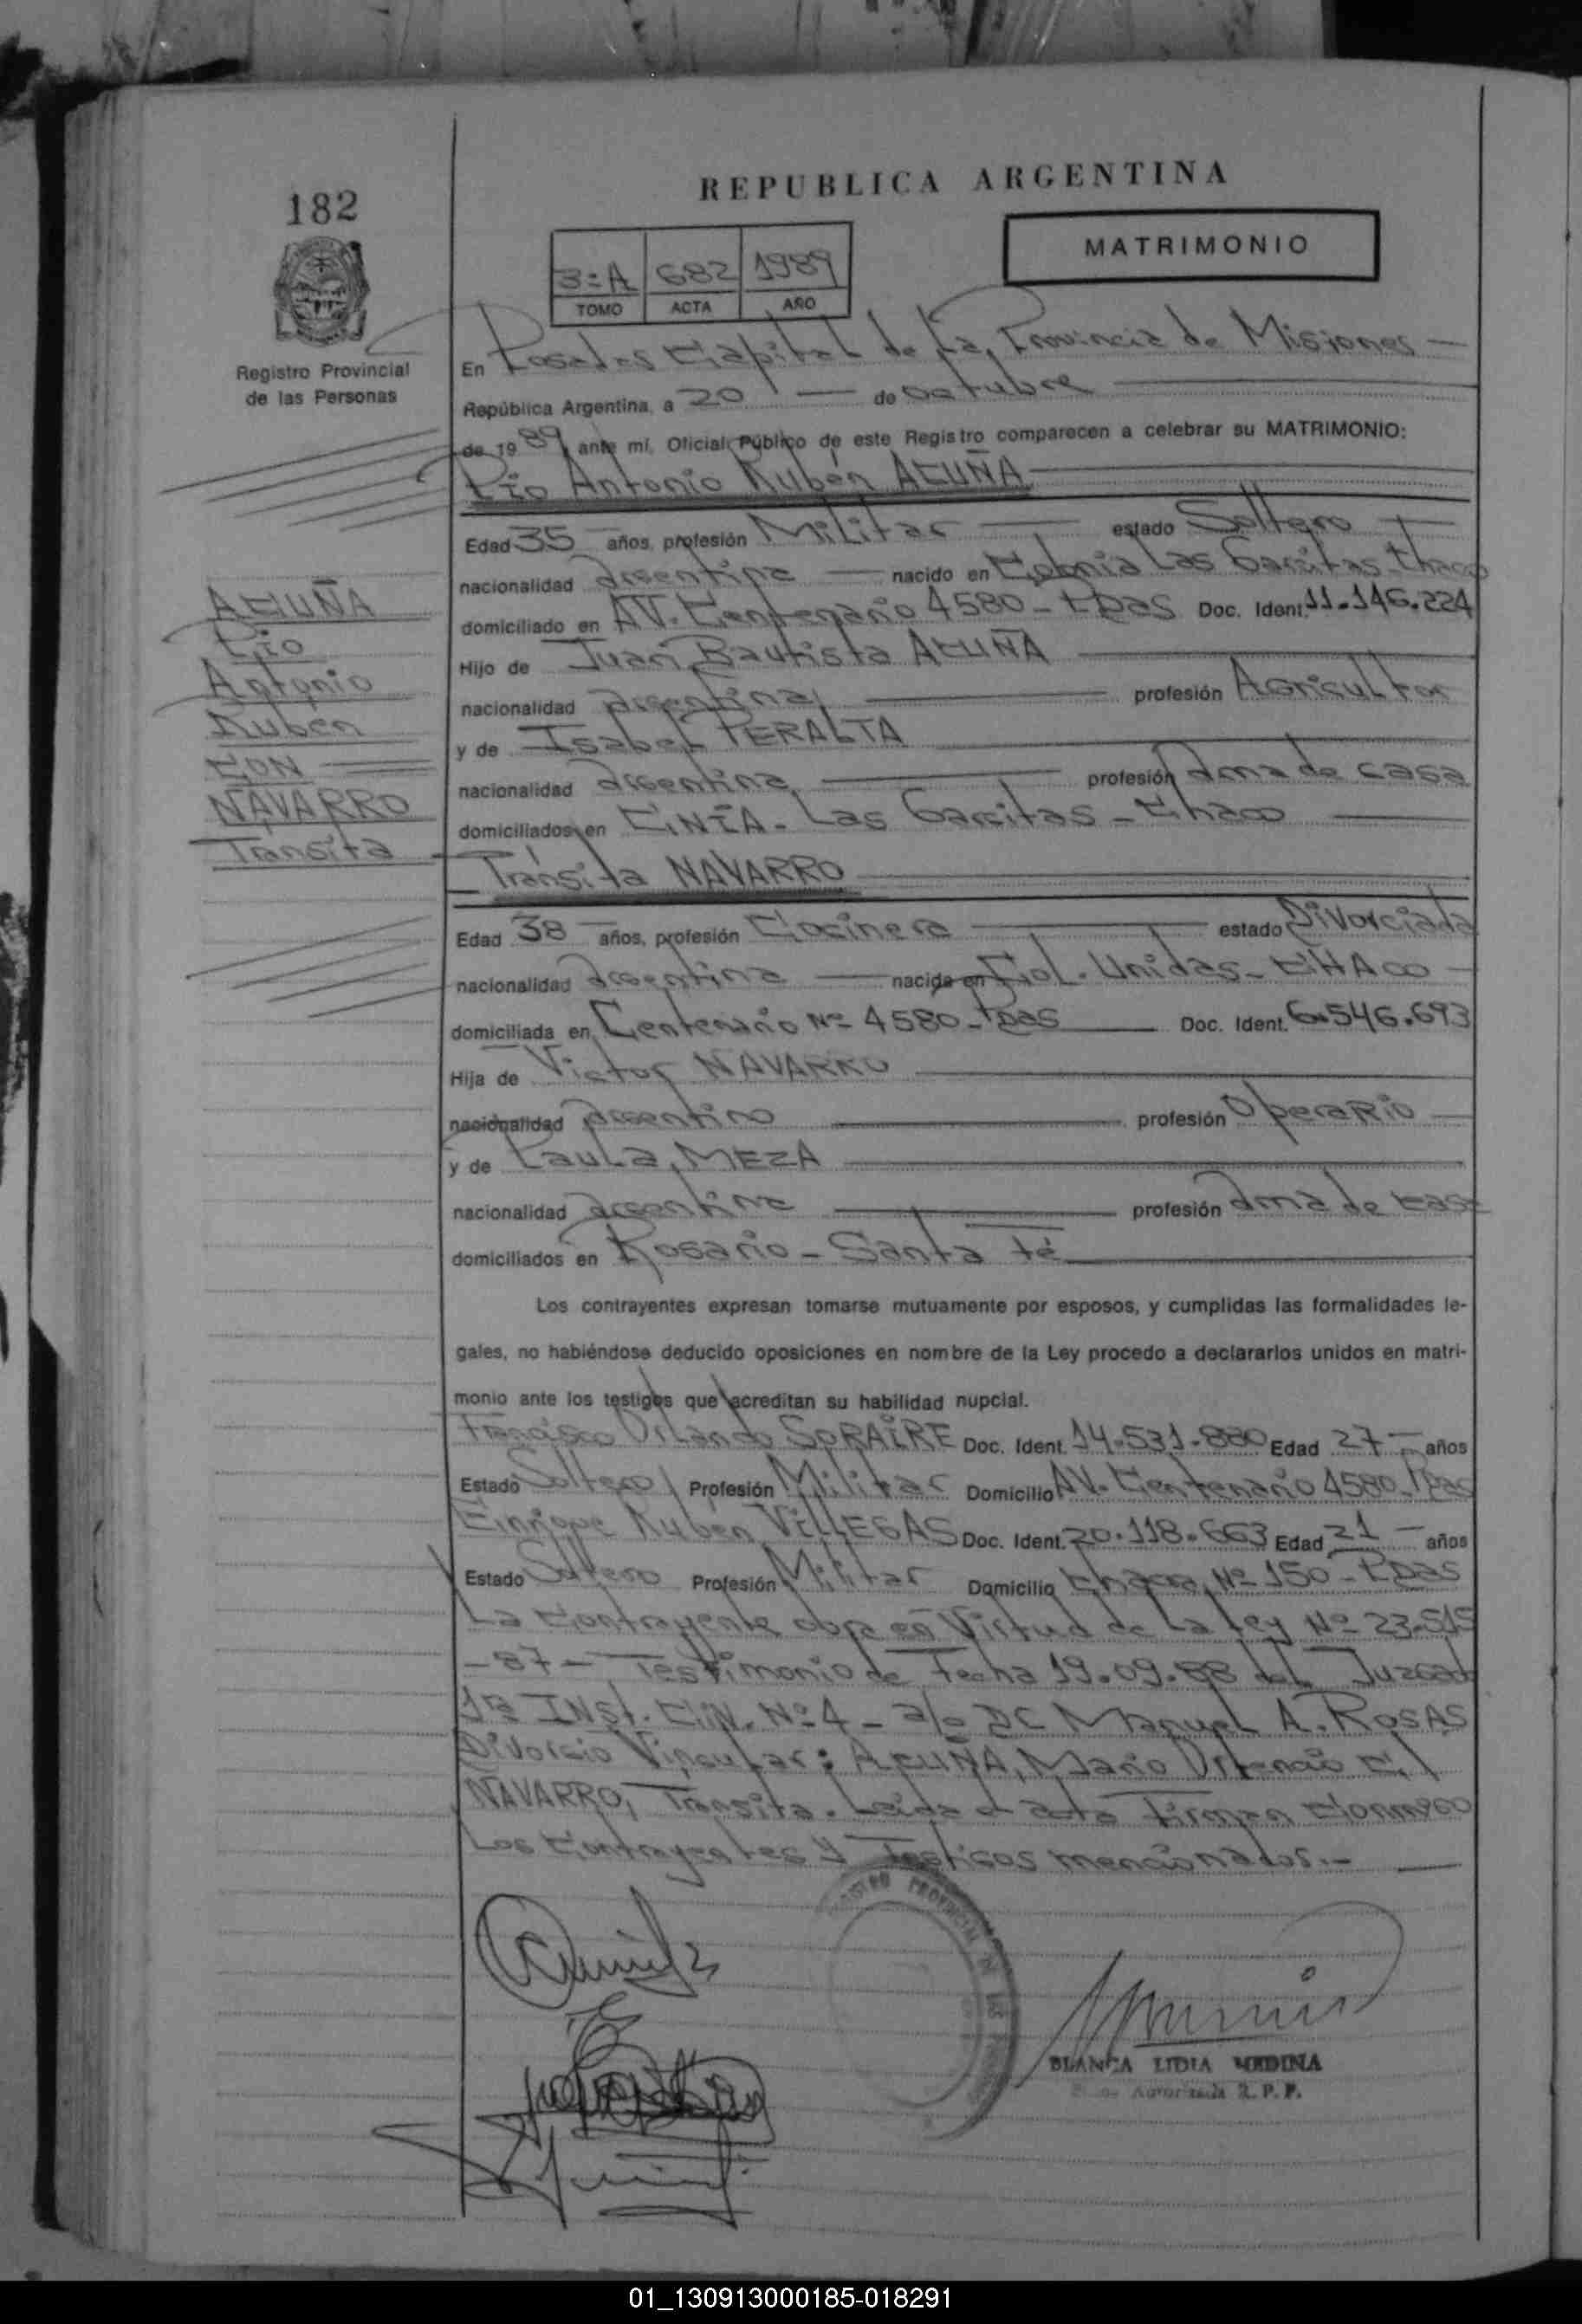 182
REPUBLICA ARGENTINA
MATRIMONIO
3=A 682 1989
TOMO ACTA AÑO
Registro Provincial
de las Personas
En Posadas Capital de La Provincia de Misiones
República Argentina, a 20 de octubre
de 1989, ante mí, Oficial Público de este Registro comparecen a celebrar su MATRIMONIO:
Pio Antonio Rubén ACUÑA
Edad 35 años, profesión Militar estado Soltero
nacionalidad argentina nacido en Colonia Las Garcitas-Chaco
domiciliado en AV. Centenario 4580-Pdas Doc. Ident. 11.146.224
Hijo de Juan Bautista ACUÑA
nacionalidad argentina profesión Agricultor
y de Isabel PERALTA
nacionalidad argentina profesión ama de casa
domiciliados en CNIA. Las Garcitas-Chaco
Tránsita NAVARRO
Edad 38 años, profesión Cocinera estado Divorciada
nacionalidad argentina nacida en Col. Unidas-CHACO
domiciliada en Centenario Nº 4580-Pdas Doc. Ident. 6.546.693
Hija de Victor NAVARRO
nacionalidad argentino profesión Operario
y de Paula MEZA
nacionalidad argentina profesión ama de casa
domiciliados en Rosario-Santa Fé
ACUÑA
Pio
Antonio
Rubén
CON
NAVARRO
Transita
Los contrayentes expresan tomarse mutuamente por esposos, y cumplidas las formalidades le-
gales, no habiéndose deducido oposiciones en nombre de la Ley procedo a declararlos unidos en matri-
monio ante los testigos que acreditan su habilidad nupcial.
Francisco Orlando SORAIRE Doc. Ident. 14.531.880 Edad 27 años
Estado Soltero Profesión Militar Domicilio AV. Centenario 4580-Pdas
Enrique Rubén VILLEGAS Doc. Ident. 20.118.663 Edad 21 años
Estado Soltero Profesión Militar Domicilio Chacra Nº 150-Pdas
La Contrayente obra en Virtud de La Ley Nº 23.515
-87- Testimonio de Fecha 19.09.88 del Juzgado
1ra INSt. CIV. Nº 4 - a/c DC Manuel A. ROSAS
Divorcio Vincular: ACUÑA, Mario Ortencio C/
NAVARRO, Transita. Leida el acta Firman Conmigo
Los Contrayentes y Testigos mencionados.-
REGISTRO PROVINCIAL DE LAS PERSONAS
BLANCA LIDIA MEDINA
Autorizada R.P.P.
01_130913000185-018291